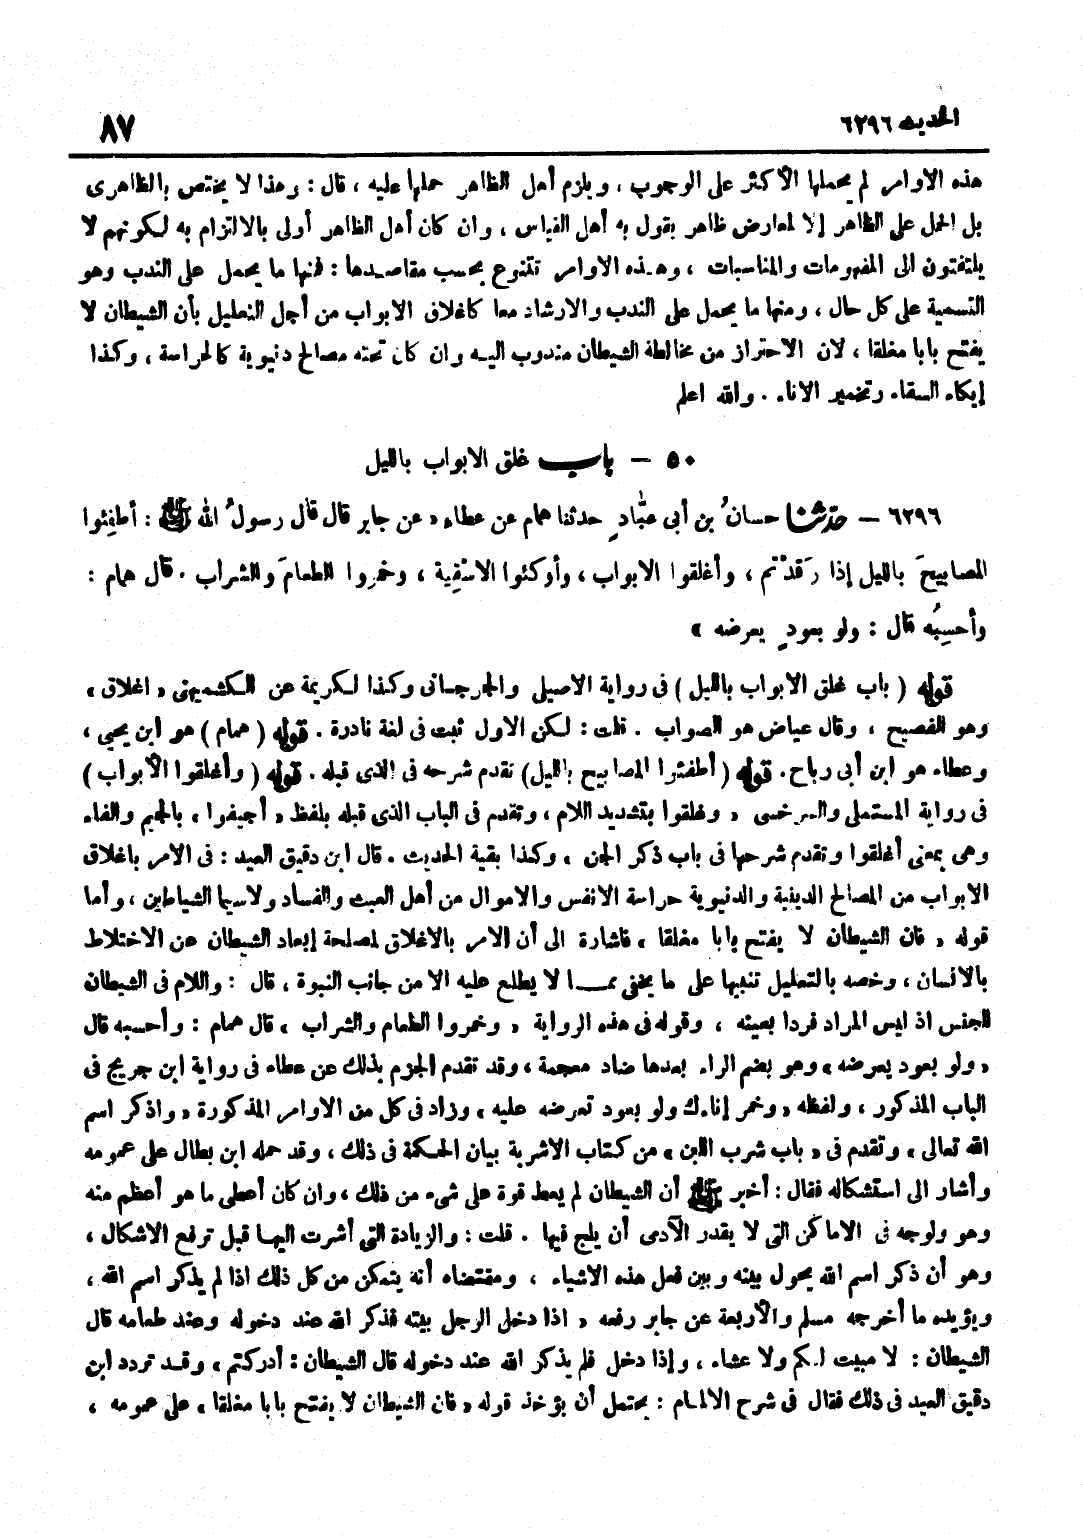 الحديث ٦٢٩٦
٨٧
هذه الاوامر لم يحملها الأكثر على الوجوب ، ويلزم أهل الظاهر حملها عليه ، قال : وهذا لا يختص بالظاهرى
بل الحمل على الظاهر إلا لمعارض ظاهر يقول به أهل القياس ، وان كان أهل الظاهر أولى بالالتزام به لكونهم لا
يلتفتون الى المفهومات والمناسبات ، وهذه الاوامر تتنوع بحسب مقاصدها : فمنها ما يحمل على الندب وهو
التسمية على كل حال ، ومنها ما يحمل على الندب والارشاد معا كاغلاق الابواب من أجل التعليل بأن الشيطان لا
يفتح بابا مغلقا ، لان الاحتراز من مخالطة الشيطان مندوب اليه وان كان تحته مصالح دنيوية كالحراسة ، وكذا
إيكاء السقاء وتخمير الاناء . والله اعلم
٥٠ - باب غلق الابواب بالليل
٦٢٩٦ - حدثنا حسانُ بن أبي عبَّادٍ حدثنا همام عن عطاء « عن جابر قال قال رسولُ الله ﷺ : أطفِئوا
المصابيحَ بالليل إذا رَقدْتم ، وأغلقوا الابواب ، وأوكئوا الاسْقِية ، وخمروا الطعامَ والشراب . قال همام :
وأحسِبُه قال : ولو بعودٍ يعرضه »
قوله ( باب غلق الابواب بالليل ) فى رواية الاصيلى والجرجانى وكذا لكريمة عن الكشميهنى « اغلاق »
وهو الفصيح ، وقال عياض هو الصواب . قلت : لكن الاول ثبت فى لغة نادرة . قوله ( همام ) هو ابن يحيى ،
وعطاء هو ابن أبى رباح . قوله ( أطفئوا المصابيح بالليل ) تقدم شرحه فى الذى قبله . قوله ( وأغلقوا الأبواب )
فى رواية المستملى والسرخسى « وغلقوا بتشديد اللام ، وتقدم فى الباب الذى قبله بلفظ « أجيفوا » بالجيم والفاء
وهى بمعنى أغلقوا وتقدم شرحها فى باب ذكر الجن » وكذا بقية الحديث . قال ابن دقيق العيد : فى الامر باغلاق
الابواب من المصالح الدينية والدنيوية حراسة الانفس والاموال من أهل العبث والفساد ولاسيما الشياطين ، وأما
قوله « فان الشيطان لا يفتح بابا مغلقا » فاشارة الى أن الامر بالاغلاق لمصلحة إبعاد الشيطان عن الاختلاط
بالانسان ، وخصه بالتعليل تنبيها على ما يخفى مما لا يطلع عليه الا من جانب النبوة ، قال : واللام فى الشيطان
للجنس اذ ليس المراد فردا بعينه ، وقوله فى هذه الرواية « وخمروا الطعام والشراب » قال همام : وأحسبه قال
« ولو بعود يعرضه » وهو بضم الراء بعدها ضاد معجمة ، وقد تقدم الجزم بذلك عن عطاء فى رواية ابن جريج فى
الباب المذكور ، ولفظه « وخمر إناءك ولو بعود تعرضه عليه » وزاد فى كل من الاوامر المذكورة « واذكر اسم
الله تعالى » وتقدم فى « باب شرب اللبن » من كتاب الاشربة بيان الحكمة فى ذلك ، وقد حمله ابن بطال على عمومه
وأشار الى استشكاله فقال : أخبر ﷺ أن الشيطان لم يعط قوة على شىء من ذلك ، وان كان أعطى ما هو أعظم منه
وهو ولوجه فى الاماكن التى لا يقدر الآدمى أن يلج فيها . قلت : والزيادة التى أشرت اليها قبل ترفع الاشكال ،
وهو أن ذكر اسم الله يحول بينه وبين فعل هذه الاشياء ، ومقتضاه أنه يتمكن من كل ذلك اذا لم يذكر اسم الله ،
ويؤيده ما أخرجه مسلم والأربعة عن جابر رفعه « اذا دخل الرجل بيته فذكر الله عند دخوله وعند طعامه قال
الشيطان : لا مبيت لكم ولا عشاء ، وإذا دخل فلم يذكر الله عند دخوله قال الشيطان : أدركتم » وقد تردد ابن
دقيق العيد فى ذلك فقال فى شرح الالمام : يحتمل أن يؤخذ قوله « فان الشيطان لا يفتح بابا مغلقا » على عمومه ،